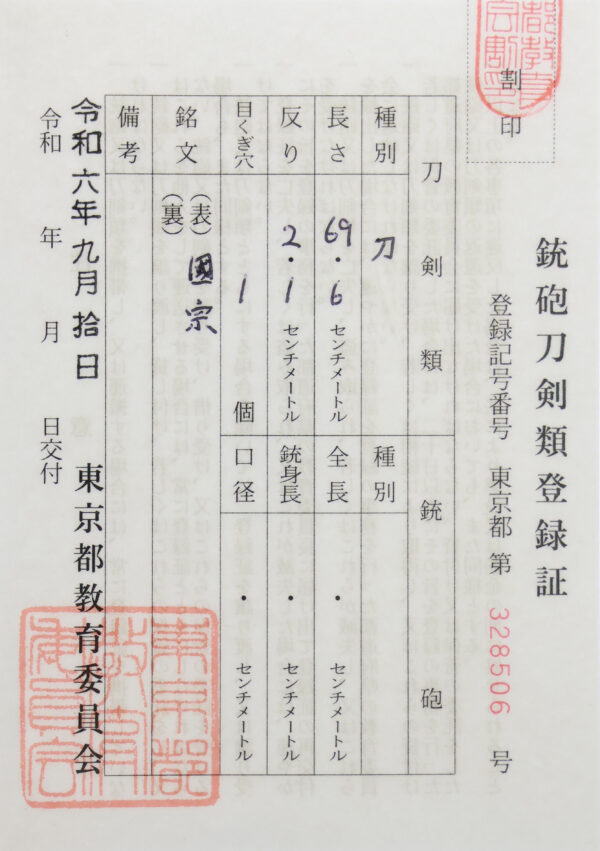 割印
銃砲刀剣類登録証
登録記号番号 東京都 第 328506 号
刀剣類
銃砲
種別 刀
長さ 69.6 センチメートル
反り 2.1 センチメートル
目くぎ穴 1 個
銘文 (表) 國宗
(裏)
備考
種別
全長 ・ センチメートル
銃身長 ・ センチメートル
口径 ・ センチメートル
令和六年九月拾日
令和 年 月 日交付
東京都教育委員会
東京都教育委員会